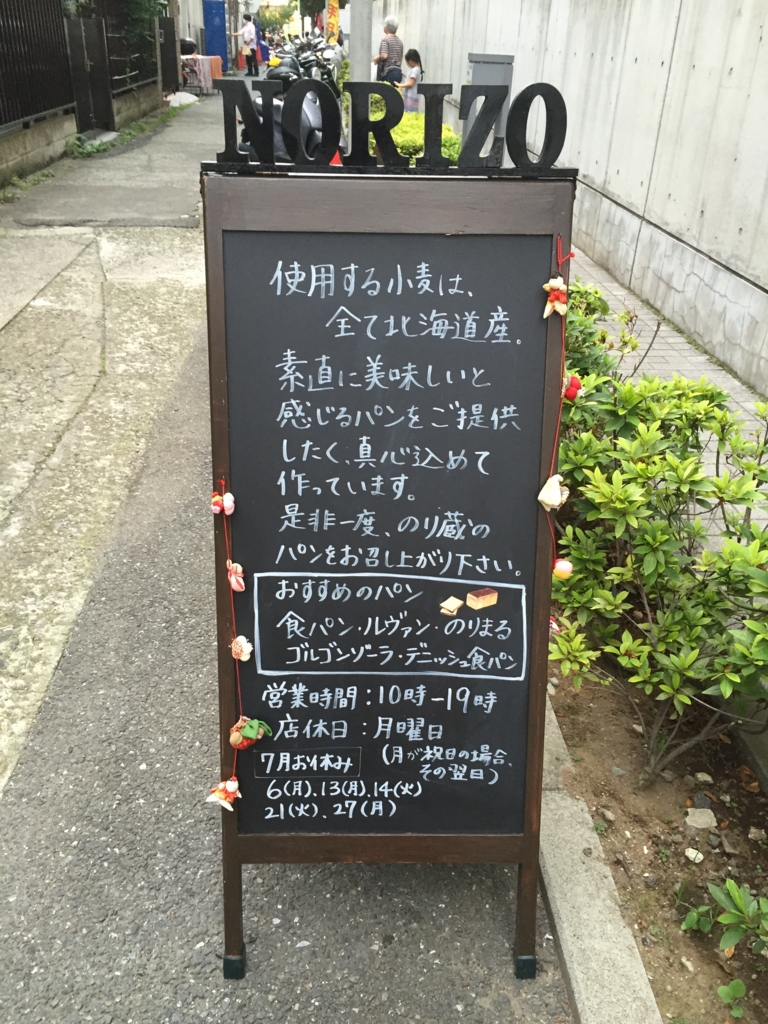 NORIZO
使用する小麦は、
全て北海道産。
素直に美味しいと
感じるパンをご提供
したく、真心込めて
作っています。
是非一度、のり蔵の
パンをお召し上がり下さい。
おすすめのパン
食パン・ルヴァン・のりまる
ゴルゴンゾーラ・デニッシュ食パン
営業時間：10時－19時
店休日：月曜日
(月が祝日の場合、
その翌日)
7月お休み
6(月).13(月).14(火)
21(火)、27(月)